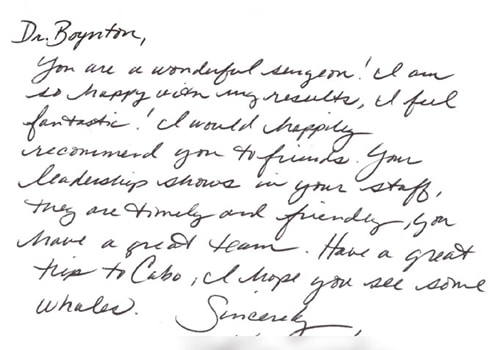 Dr. Boynton,
You are a wonderful surgeon! I am
so happy with my results, I feel
fantastic! I would happily
recommend you to friends. Your
leadership shows in your staff,
they are timely and friendly, you
have a great team. Have a great
trip to Cabo, I hope you see some
whales. Sincerely,